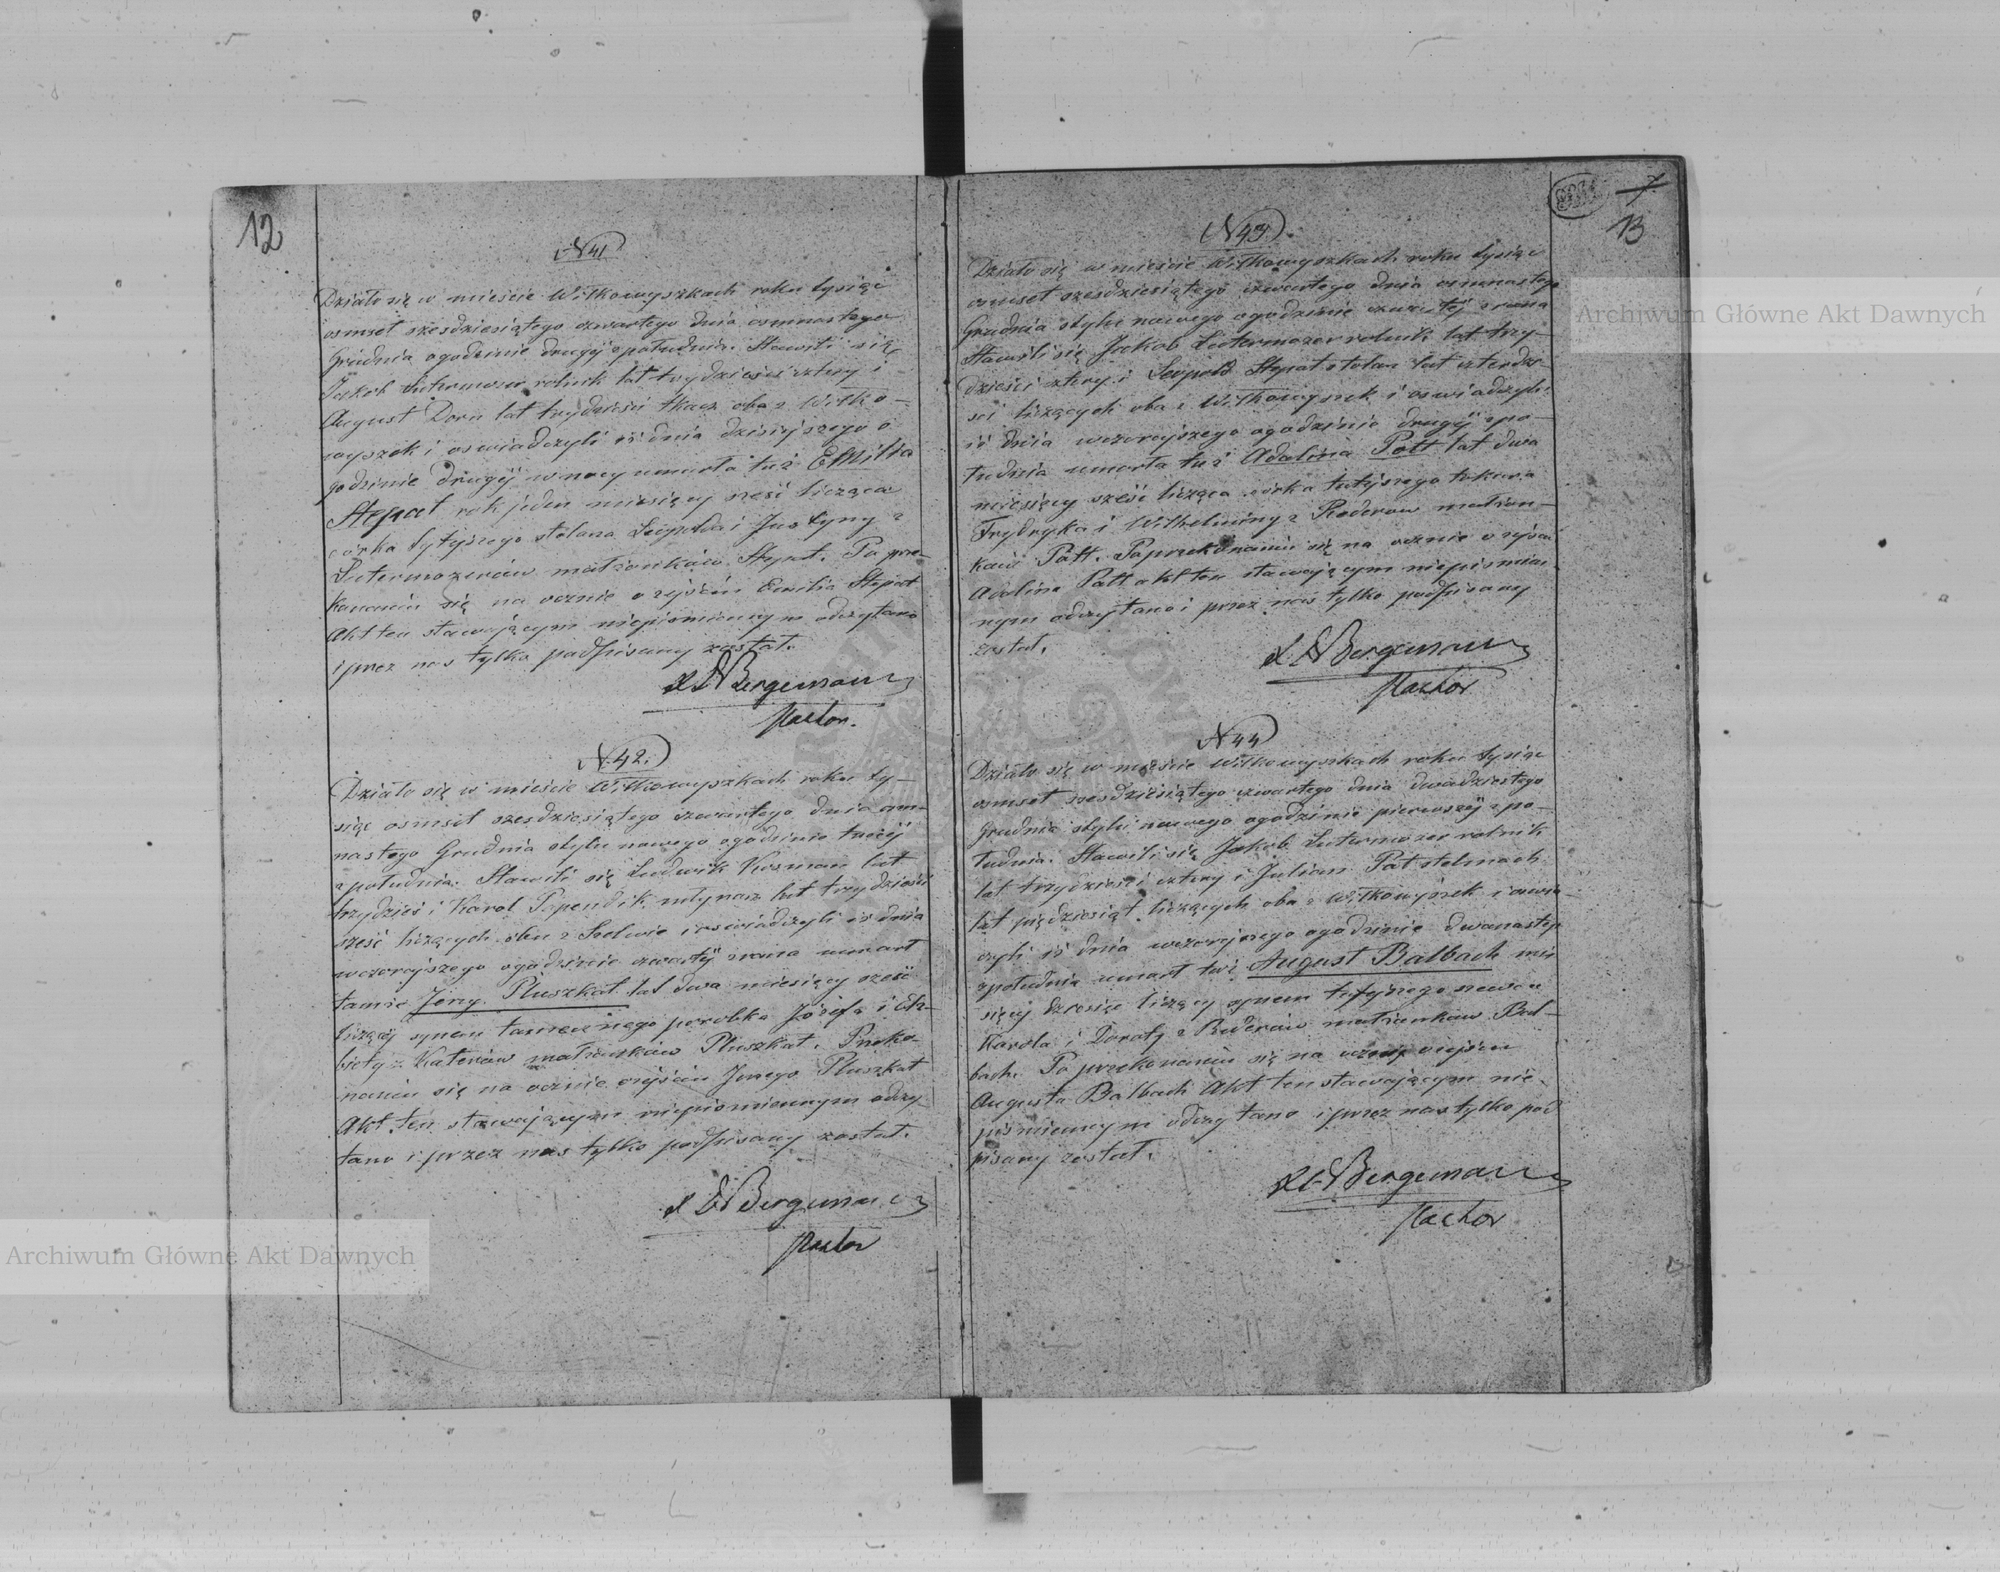 12
N 41
Działo się w mieście Wiłkowyszkach roku tysiąc
osmset szesdziesiątego czwartego dnia osmnastego
Grudnia ogodzinie drugiy społudnia. Stawili się
Jakob Lutermozer rolnik lat trzydzieści cztery i
August Dorn lat trzydzieści tkacz oba z Wiłko-
wyszek i oswiadczyli iż dnia dzisiejszego o
godzinie drugiy w nocy umarła tuż Emilia
Stepat rok jeden miesięcy sześć licząca
córka tytejszego stolarza Leopolda i Justyny z
Lutermozerów małżonków Stepat. Po prze-
konaniu się na ocznie o zejściu Emilia Stepat
Akt ten stawającym niepismiennym odczytano
i przez nas tylko podpisany został.
Bergemann
Pastor.
N. 42.
Działo się w mieście Wiłkowyszkach roku ty-
siąc osmset szesdziesiątego czwartego dnia osm-
nastego Grudnia stylu nowego ogodzinie trzeciy
społudnia. Stawili się Ludwik Kusman lat
trzydzieś i Karol Pependik młynarz lat trzydzieści
sześć liczących oba z Szelwie i oswiadczyli iż dnia
wczorajszego ogodzinie czwartiy zrana umarł
tamże Jerzy Pluszkat lat dwa miesięcy sześć
liczący synem tamecznego parobka Józefa i Elż-
biety z Katerów małżonków Pluszkat. Przeko-
naniu się na ocznie ozejściu Jerzego Pluszkat
Akt ten stawającym niepismiennym odczy-
tano i przez nas tylko podpisany został.
Bergemann
Pastor
7
13
N 43.
Działo się w mieście Wiłkowyszkach roku tysiąc
osmset szesdziesiątego czwartego dnia osmnastego
Grudnia stylu nowego ogodzinie czwartiy zrana
Stawili się Jakob Lutermozer rolnik lat trzy-
dzieści cztery i Leopold Stepat stolarz lat czterdzie-
sci liczących oba z Wiłkowyszek i oswiadczyli
iż dnia wczorajszego ogodzinie drugiy spo-
łudnia umarła tuż Adalina Patt lat dwa
miesięcy sześć licząca córka tutejszego tokarza
Frydryka i Wilhelminy z Rederow małżon-
ków Patt. Poprzekonaniu się na ocznie o zejściu
Adolina Patt akt ten stawającym niepismien-
nym odczytano i przez nas tylko podpisany
został.
Bergemann
Pastor
N 44
Działo się w mieście Wiłkowyszkach roku tysiąc
osmset szesdziesiątego czwartego dnia dwudziestego
Grudnia stylu nowego ogodzinie pierwszéj spo-
łudnia. Stawili się Jakob Lutermozer rolnik
lat trzydzieści cztery i Julian Pat stelmach
lat pięćdziesiąt liczących oba z Wiłkowyszek i oświad-
czyli iż dnia wczorajszego ogodzinie dwanastéj
społudnia umarł tuż August Balbach mie
sięcy dziesięc liczący synem tutejszego szewca
Karola i Doroty z Rederów małżonków Bal-
bach. Po przekonaniu się na ocznie ozejściu
Augusta Balbach Akt ten stawającym nie-
piśmiennym odczytano i przez nas tylko pod
pisany został.
Bergemann
Pastor
Archiwum Główne Akt Dawnych
Archiwum Główne Akt Dawnych